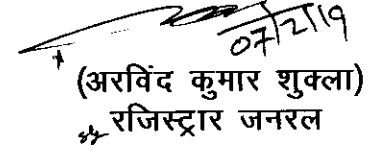 07/2/19
(अरविंद कुमार शुक्ला)
रजिस्ट्रार जनरल